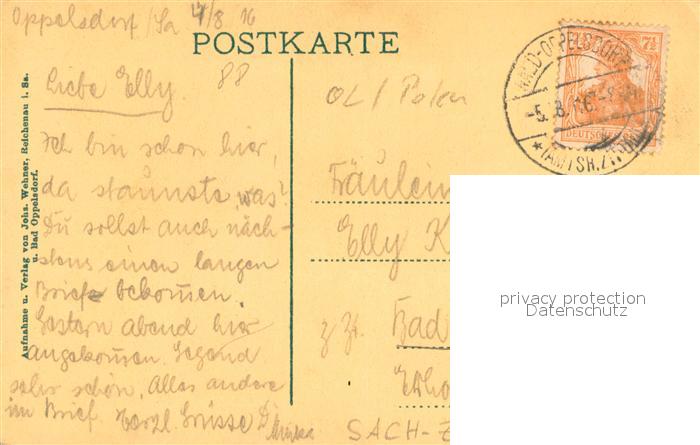 Oppelsdorf/Sa 4/8 16
POSTKARTE
88
Liebe Elly.
Ich bin schon hier,
da staunste, was?
Du sollst auch näch-
stens einen langen
Brief bekom̄en.
Gestern abend hier
angekom̄en. Gegend
sehr schön. Alles andere
im Brief. Herzl. Grüsse D.
Aufnahme u. Verlag von Johs. Wehner, Reichenau i. Sa.
u. Bad Oppelsdorf.
OL / Polen
Fräulein
Elly K
z. Zt. Bad
SACH-Z
7½
DEUTSCHES
WALD-OPPELSDORF
-5. 8. 16.
* (AMTSH. ZITTAU)
privacy protection
Datenschutz